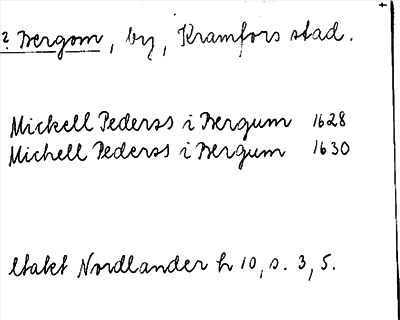 2 Bergom, by, Kramfors stad.
Mickell Pederss i Bergum 1628
Michell Pederss i Bergum 1630
Utakt Nordlander h 10, s. 3, 5.